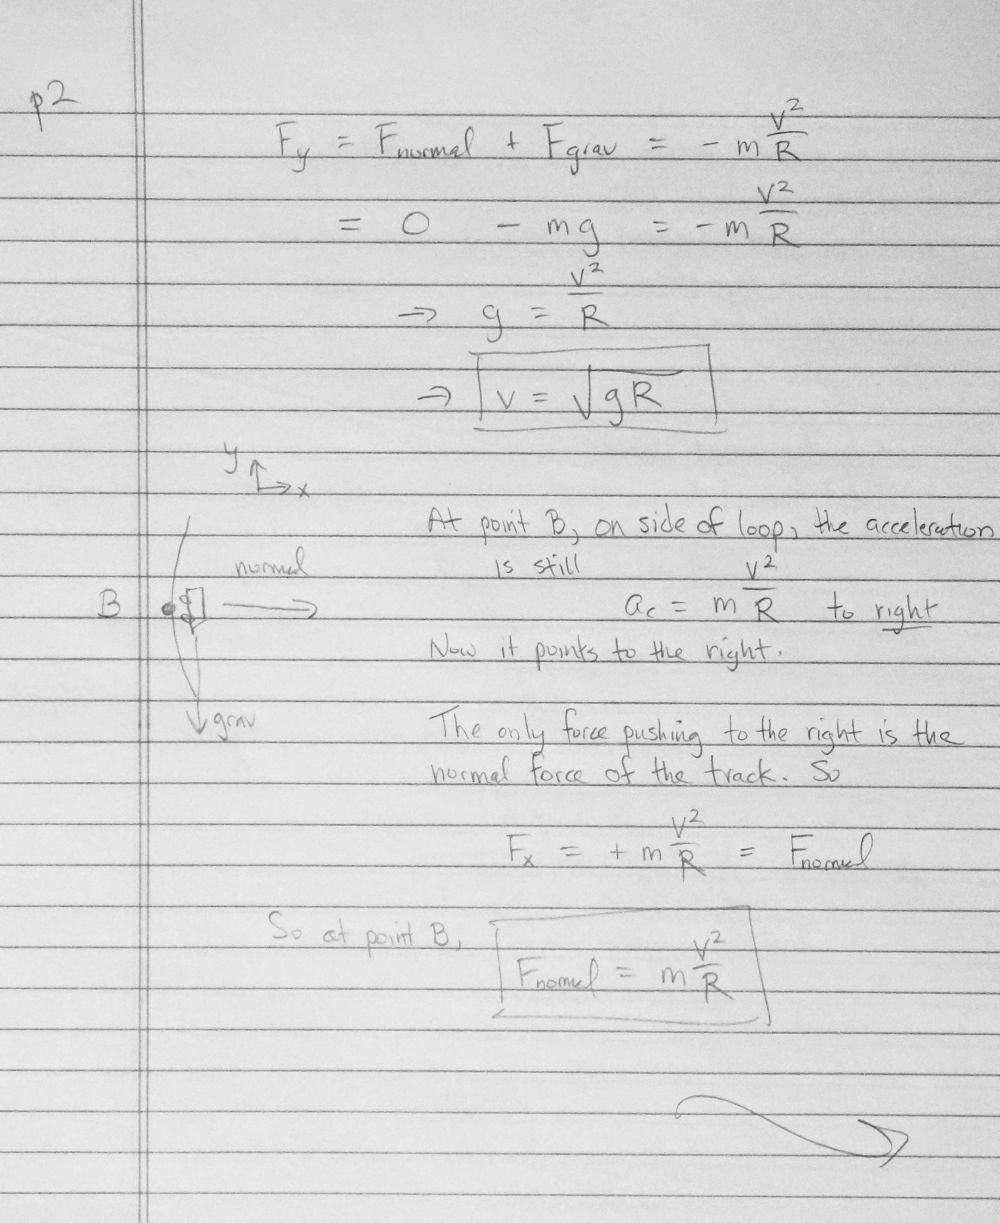 p2
F_y = F_normal + F_grav = - m v²/R
= 0 - mg = - m v²/R
→ g = v²/R
→ v = √gR
y
x
At point B, on side of loop, the acceleration
is still
normal
B
a_c = m v²/R to right
Now it points to the right.
grav
The only force pushing to the right is the
normal force of the track. So
F_x = + m v²/R = F_normal
So at point B,
F_normal = m v²/R